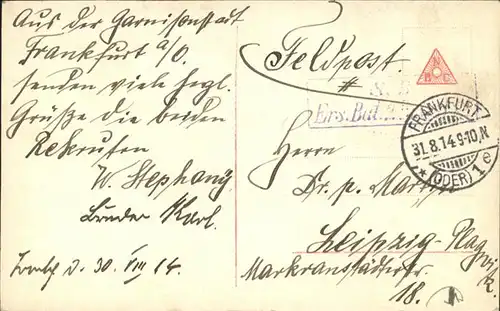 Aus der Garnisonstadt
Frankfurt a/O.
senden viele herzl.
Grüße die beiden
Rekruten
W. Stephany
Bruder Karl.
d. 30. VIII 14.
Feldpost.
N
B C
Ers. Bat.
FRANKFURT
31.8.14 9-10 N
* (ODER) 1 e
Herrn
Dr. p. Martin
Leipzig-Plagwitz.
Markranstädterstr.
18.